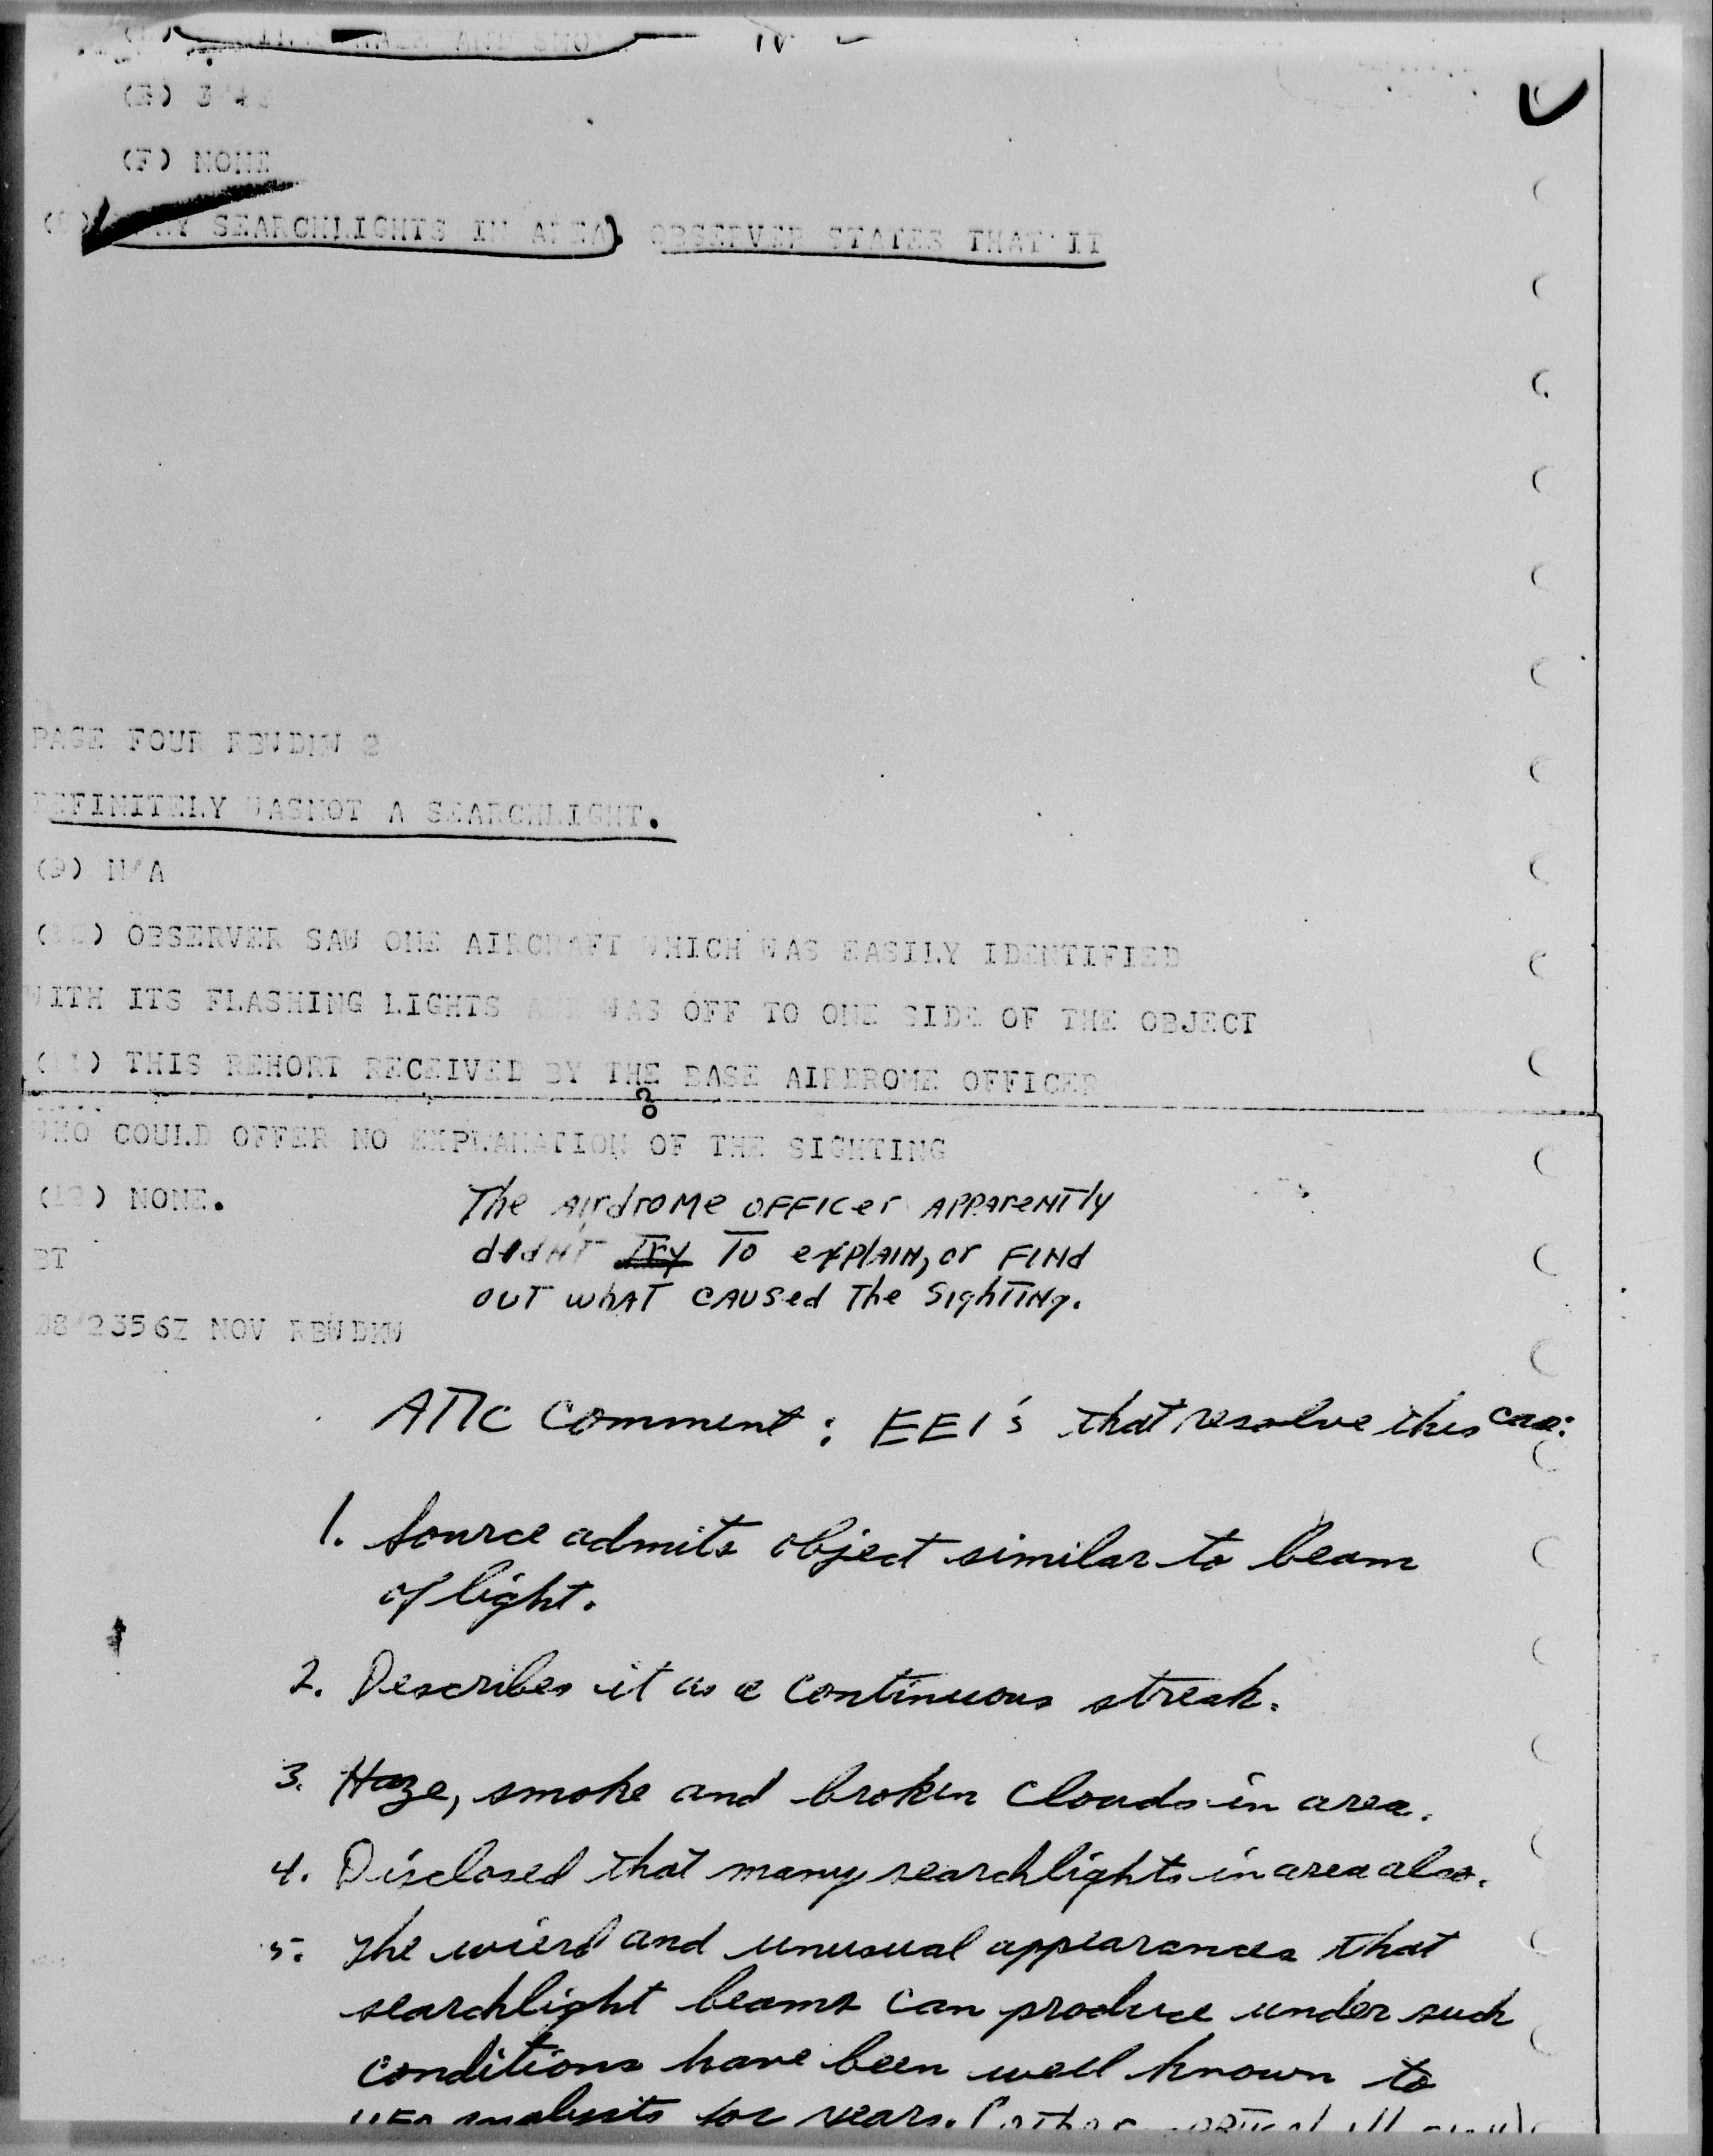 AND SMO
(F) NONE
SEARCHLIGHTS IN AREA) OBSERVER STATES THAT IT
PAGE FOUR
DEFINITELY WASNOT A SEARCHLIGHT.
(9) N/A
OBSERVER SAW ONE AIRCRAFT WHICH WAS EASILY IDENTIFIED
WITH ITS FLASHING LIGHTS WAS OFF TO ONE SIDE OF THE OBJECT
(11) THIS REHORT RECEIVED BY THE BASE AIRDROME OFFICER
WHO COULD OFFER NO EXPLANATION OF THE SIGHTING
NONE.
The Airdrome OFFICER APPARENTLY
didNT Try TO explAIN, or FINd
OUT whAT CAUSed The SighTINg.
BT
NOV
ATIC Comment: EEI's that resolve this case:
1. Source admits object similar to beam
of light.
2. Describes it as a continuous streak.
3. Haze, smoke and broken clouds in area.
4. Disclosed that many searchlights in area also.
5. The wierd and unusual appearances that
searchlight beams can produce under such
conditions have been well known to
UFO analysts for years.